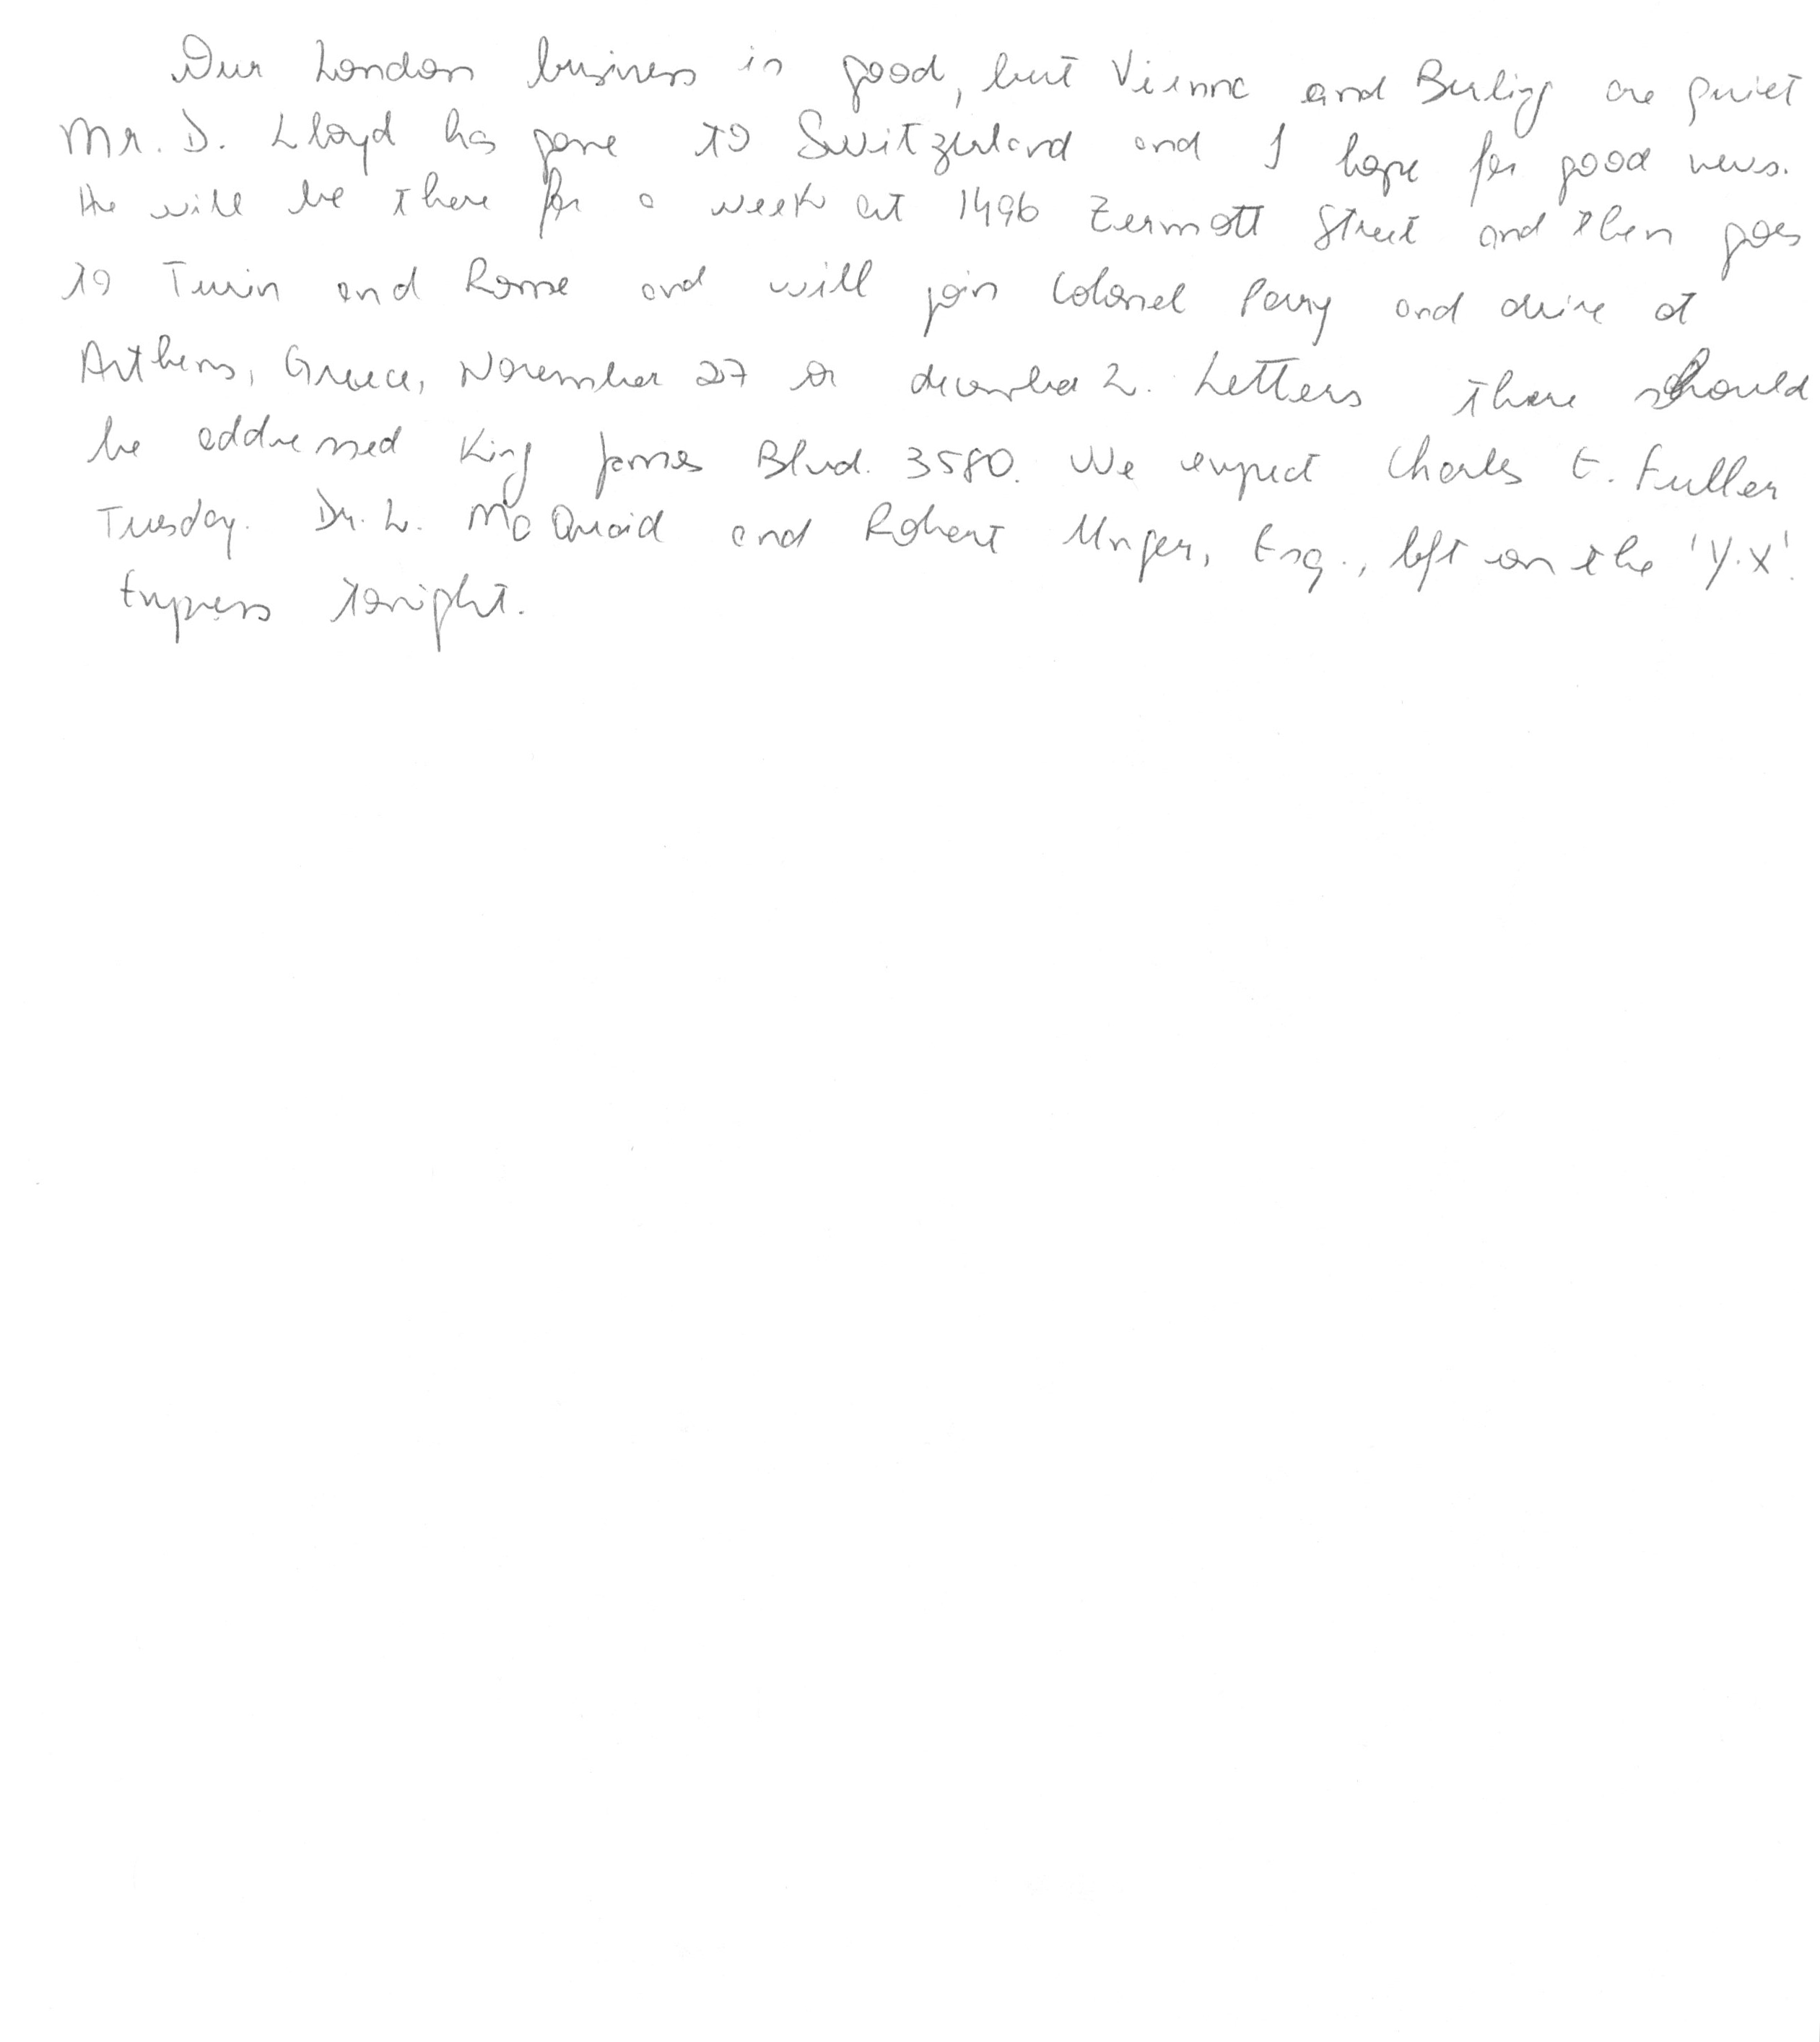 Our London business is good, but Vienna and Berling are quiet
Mr. D. Lloyd has gone to Switzerland and I hope for good news.
He will be there for a week at 1496 Zermott Street and then goes
to Turin and Rome and will join Colonel Parry and arrive at
Arthens, Greece, November 27 or december 2. Letters there should
be addressed King James Blvd. 3580. We expect Charles E. Fuller
Tuesday. Dr. L. McQuaid and Robert Unger, Esq., left on the 'Y.X'.
Express tonight.